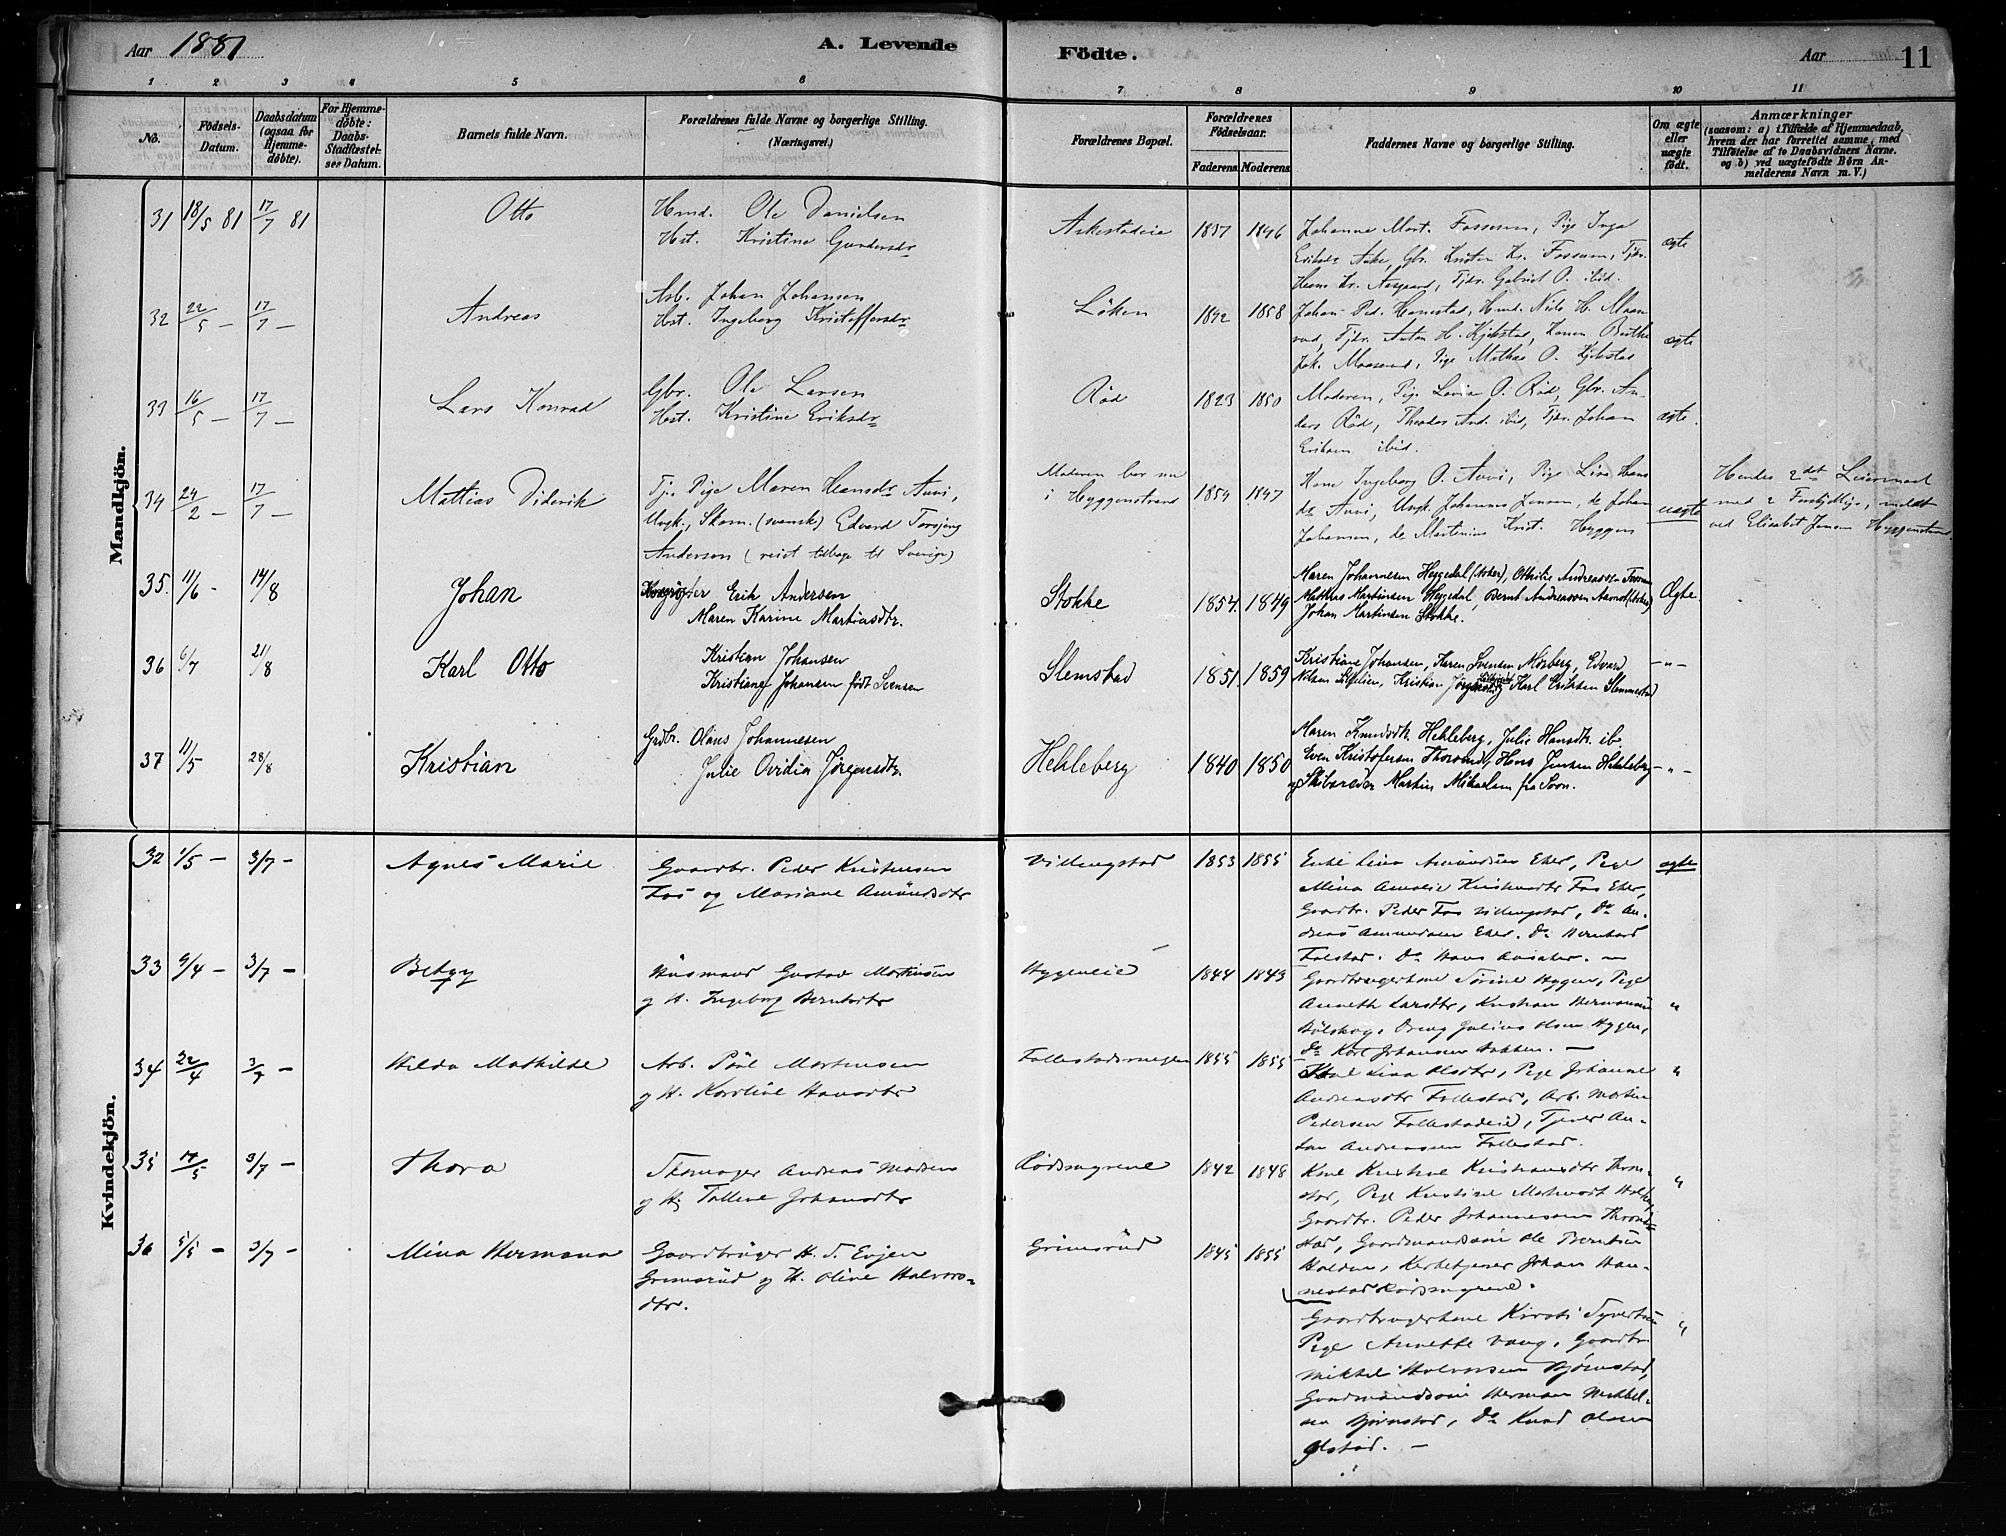 Aar 1881
A. Levende
Födte.
Aar
11
1 2 3 4 5 6 7 8 9 10 11
No.
Födsels-
Datum.
Daabsdatum
(ogsaa for
Hjemme-
döbte).
For Hjemme-
döbte:
Daabs-
Stadfæstel-
ses Datum.
Barnets fulde Navn.
Forældrenes fulde Navne og borgerlige Stilling.
(Næringsvei.)
Forældrenes Bopæl.
Forældrenes
Födselsaar.
Faderens. Moderens.
Faddernes Navne og borgerlige Stilling.
Om ægte
eller
uægte
födt.
Anmærkninger
(saasom: a) i Tilfælde af Hjemmedaab,
hvem der har forrettet samme, med
Tilföielse af to Daabsvidners Navne.
og b) ved uægtefödte Börn An-
melderens Navn m. V.)
Mandkjön.
31 18/5 81 17/7 81
Otto
Hmd. Ole Danielsen
Hst. Kristine Gundersdr
Askestadeie
1857 1846
Johanne Mort. Fossum, Pige Inga
Eriksdr Aske, Gbr. Kristen Kr. Fossum, Tjdr.
Hans Kr. Aasgaard, Tjdr. Gabriel O. ibid.
ægte
32 22/5 – 17/7 –
Andreas
Arb. Johan Johansen
Hst. Ingeborg Kristoffersdr
Löken
1842 1858
Johan Ped. Hanestad, Hmd. Nils H. Maas-
rud, Tjdr. Anton H. Kjekstad, Konen Berthe
Jak. Maasrud, Pige Mathea O. Kjekstad
ægte
33 16/5 – 17/7 –
Lars Konrad
Gbr. Ole Larsen
Hst. Kristine Eriksdr
Röd
1823 1850
Moderen, Pige Lovisa O. Röd, Gbr. An-
ders Röd, Theodor And. ibid, Tjdr. Johan
Eriksen ibid.
ægte.
34 24/2 – 17/7 –
Mattias Diderik
Tje. Pige Maren Hansdr Auvi,
Ungk., Skom. (svensk) Edvard
Anderson (reist tilbage til Sverige)
Moderen bor nu
i Hyggenstrand
1854 1847
Kone Ingeborg O. Auvi, Pige Lina Hans
dr Auvi, Ungk. Johannes Jensen, do Johan
Johansen, do Martinius Krist. Hyggen
uægte
Hendes 2det Leiermaal
med 2 Forskjellige, meldt
ved Elisabet Jensen Hyggenstrand.
35. 11/6 – 14/8
Johan
Erik Andersen
Maren Karine Martinsdtr.
Stokke
1854. 1849
Maren Johannesen Heggedal (Asker), Othilie Andreassen Fossum
Mathias Martinsen Heggedal, Bernt Andreassen Aamot (Asker)
Johan Martinsen Stokke.
Ægte.
36 6/7 21/8
Karl Otto
Kristian Johansen
Kristiane Johansen född Svensen
Slemstad
1851. 1859
Kristiane Johansen, Karen Svensen Morberg, Edvard
Nilsen, Kristian Karl Eriksen Slemmestad
–"–
37 11/5 28/8
Kristian
Grdbr. Olaus Johannesen
Julie Ovidia Jørgensdtr.
Hekleberg
1840 1850
Maren Knudsdtr. Hekleberg, Julie Hansdtr. ib.
Even Kristofersen Thorsrud, Hans Jensen Hekleberg
og Skibsreder Martin Mikaelsen fra Soon.
–"–
Kvindekjön.
32 1/5 – 3/7 –
Agnes Marie
Gaardbr. Peder Kristensen
Fos og Mariane Amundsdtr
Villingstad
1853 1855
Enke Lina Amundsen Eker, Pige
Mina Amalie Kristensdtr Fos Eker,
Gaardbr. Peder Fos Villingstad, Do An-
dreas Amundsen Eker. Do Bernhard
Follestad. Do Hans
ægte
33 9/4 – 3/7 –
Betzy
Husmand Gustav Mortensen
og H. Ingeborg Berntsdtr
Hygeneie
1844 1843
Gaardbrugerkone Torine Hygen, Pige
Anneth Larsdtr, Kristian Hermansen
Bölskog, Dreng Julius Olsen Hygen,
Do Karl Johansen Hokken. –
"
34 22/4 3/7 –
Hilda Mathilde
Arb. Paul Mortensen
og H. Karoline Hansdtr
Follestadengen
1855 1855
Kone Lina Olsdtr, Pige Johanne
Andreasdtr Follestad, Arb. Morten
Pedersen Follestadeie, Tjener An-
ton Andreassen Follestad.
"
35 17/5 3/7 –
Thora
Skomager Andreas Madsen
og H. Talline Johansdtr
Rödsmyrene
1842 1848
Kone Kristine Kristiansdtr Thron-
stad, Pige Kristine
Gaardbr. Peder Johannesen Thron-
stad, Gaardmandssøn Ole Berntsen
Holden, Kirketjener Johan Han-
nestad Rödsmyrene.
"
36 5/5 – 3/7 –
Mina Hermana
Gaardbruger H. T. Evjen
Grimsrud og H. Oline Halvors-
dtr.
Grimsrud
1845 1855
Gaardbrugerkone Kirsti Syvertsen
Pige Annette Vang, Gaardbr.
Mikkel Halvorsen Bjørnstad,
Gaardmandssøn Herman Mikkel-
sen Bjørnstad, Do Knud Olsen
Ølstad. –
"